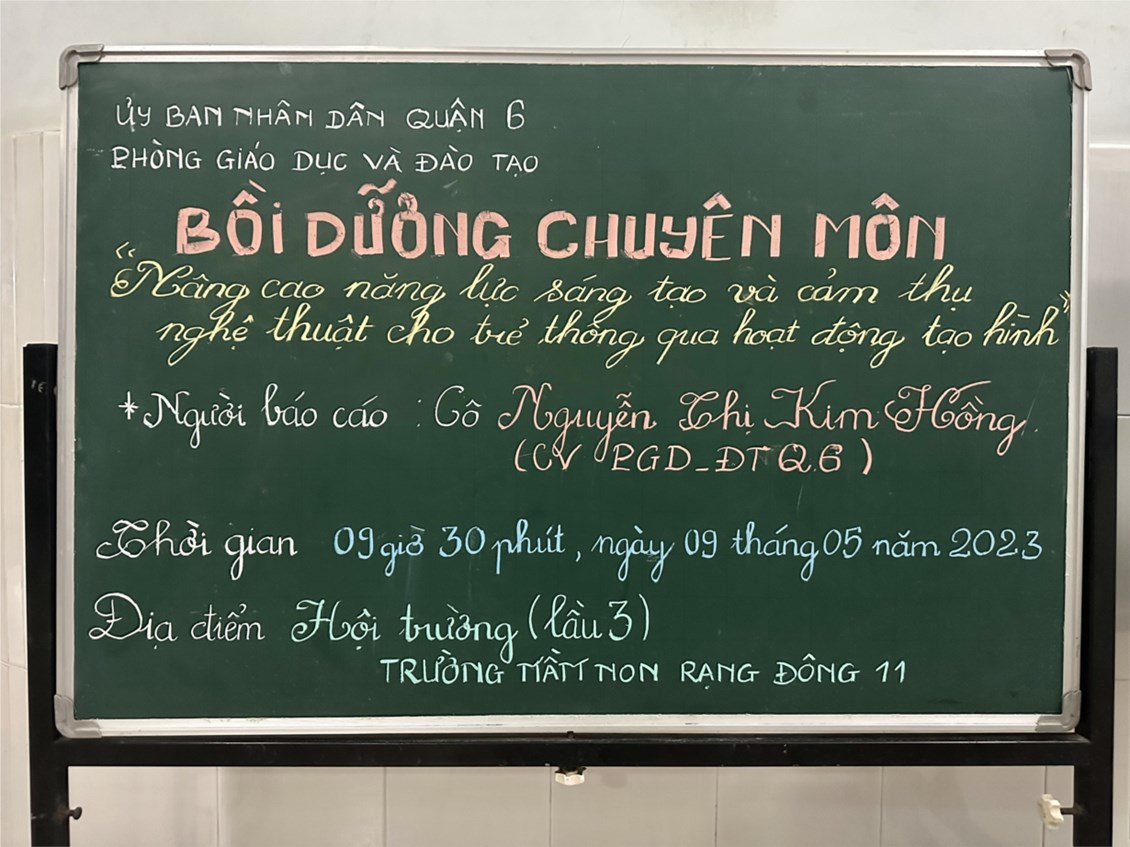 ỦY BAN NHÂN DÂN QUẬN 6
PHÒNG GIÁO DỤC VÀ ĐÀO TẠO
BỒI DƯỠNG CHUYÊN MÔN
“Nâng cao năng lực sáng tạo và cảm thụ
nghệ thuật cho trẻ thông qua hoạt động tạo hình”
*Người báo cáo : Cô Nguyễn Thị Kim Hồng.
(CV PGD_ĐT Q.6)
Thời gian 09 giờ 30 phút, ngày 09 tháng 05 năm 2023
Địa điểm Hội trường (lầu 3)
TRƯỜNG MẦM NON RẠNG ĐÔNG 11